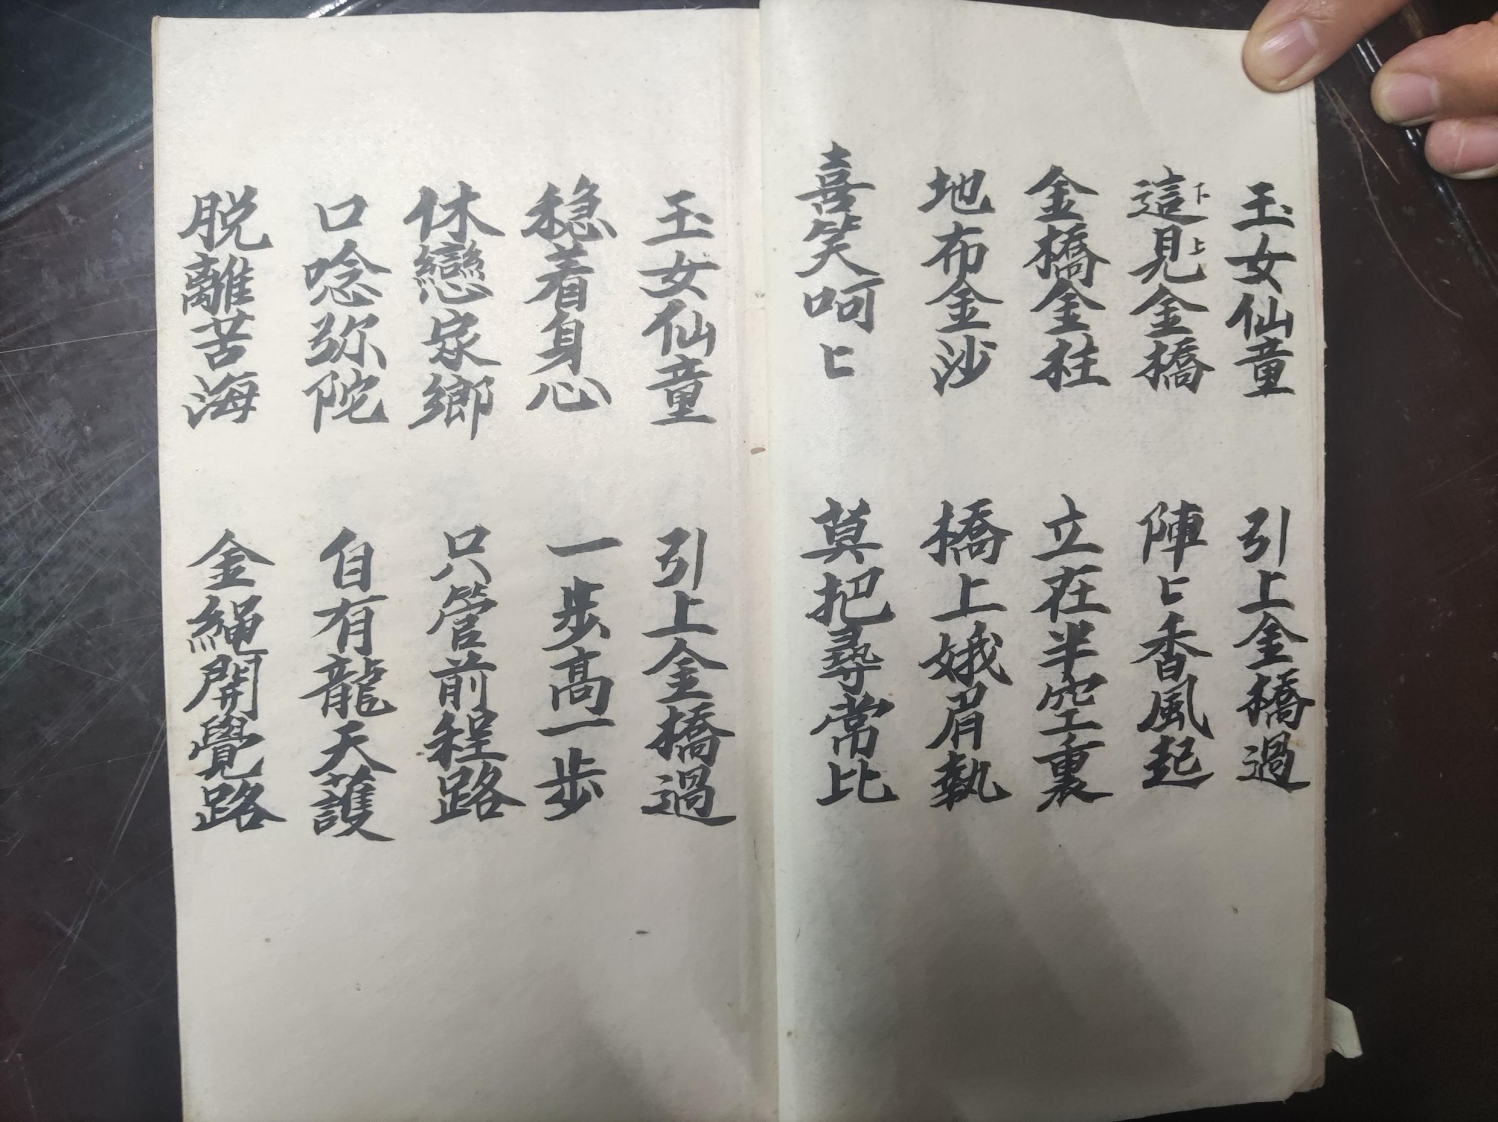 玉女仙童 引上金橋過
這下見上金橋 陣匕香風起
金橋金柱 立在半空裏
地布金沙 橋上娥眉執
喜笑呵匕 莫把尋常比
玉女仙童 引上金橋過
穏着身心 一步高一步
休戀家鄉 只管前程路
口唸弥陀 自有龍天護
脱離苦海 金繩開覺路